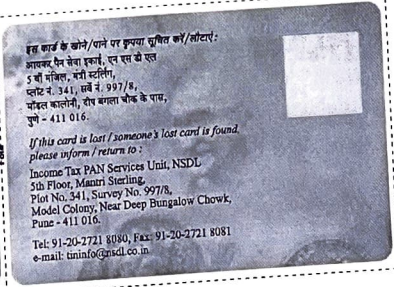 इस कार्ड के खोने/पाने पर कृपया सूचित करें/लौटाएं:
आयकर पैन सेवा इकाई, एन एस डी एल
5 वीं मंजिल, मंत्री स्टर्लिंग,
प्लॉट नं. 341, सर्वे नं. 997/8,
मॉडल कालोनी, दीप बंगला चौक के पास,
पुणे - 411 016.
If this card is lost / someone's lost card is found,
please inform / return to :
Income Tax PAN Services Unit, NSDL
5th Floor, Mantri Sterling,
Plot No. 341, Survey No. 997/8,
Model Colony, Near Deep Bungalow Chowk,
Pune - 411 016.
Tel: 91-20-2721 8080, Fax: 91-20-2721 8081
e-mail: tininfo@nsdl.co.in